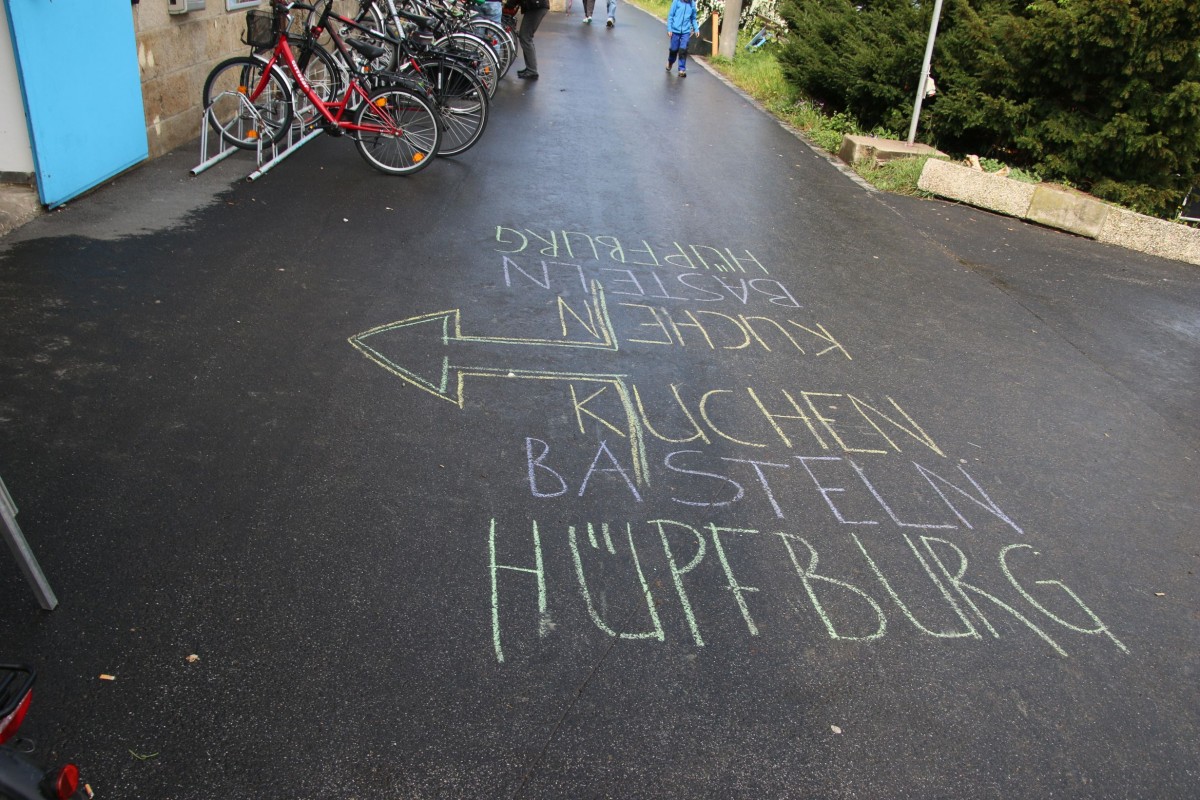 HÜPFBURG
BASTELN
KUCHEN
KUCHEN
BASTELN
HÜPFBURG